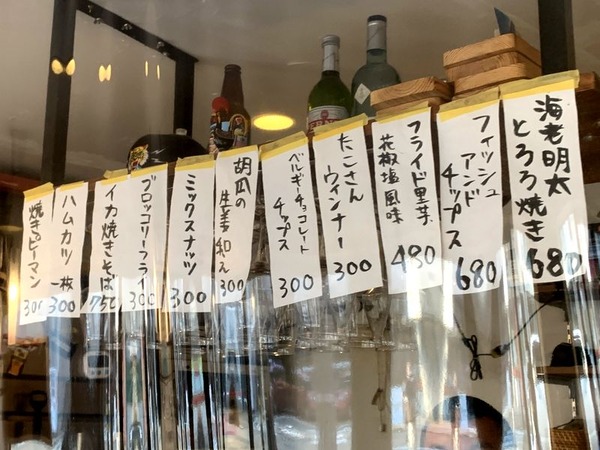 海老明太
とろろ焼き
680
フィッシュ
アンド
チップス
680
フライド里芋
花椒塩風味
480
たこさん
ウィンナー
300
ベルギーチョコレート
チップス
300
胡瓜の
生姜和え
300
ミックスナッツ
300
ブロッコリーフライ
300
イカ焼きそば
ハムカツ 一枚
300
焼きピーマン
300